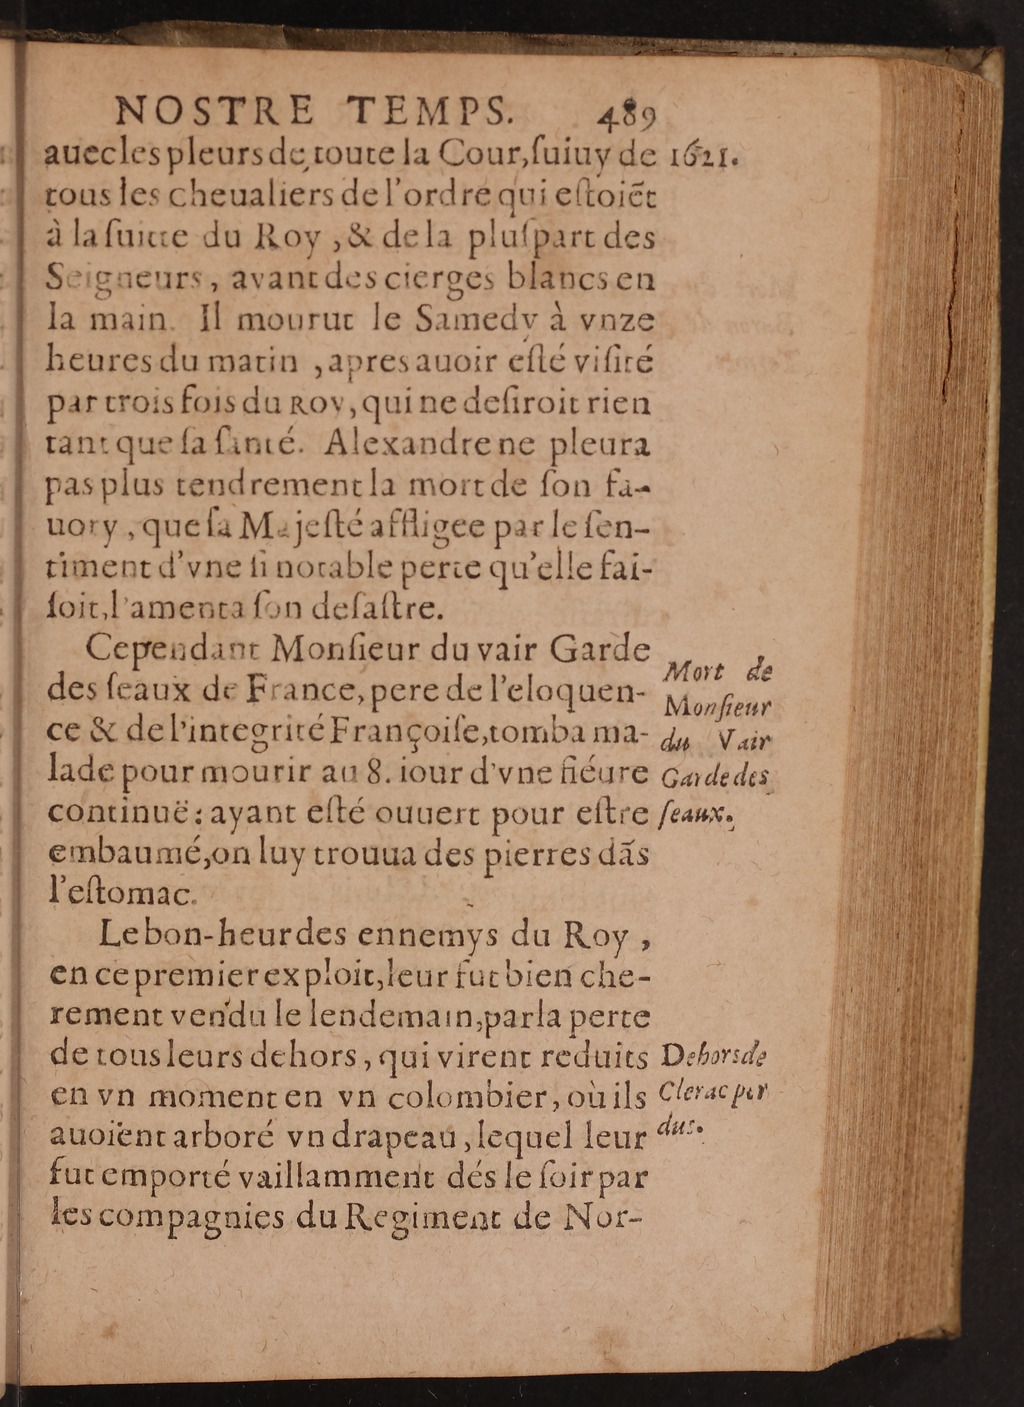 NOSTRE TEMPS. 489
auec les pleurs de toute la Cour, ſuiuy de 1621.
tous les cheualiers de l'ordre qui eſtoiẽt
à la ſuitte du Roy, & de la pluſpart des
Seigneurs, ayant des cierges blancs en
la main. Il mourut le Samedy à vnze
heures du matin, apres auoir eſté viſité
par trois fois du Roy, qui ne deſiroit rien
tant que ſa ſanté. Alexandre ne pleura
pas plus tendrement la mort de ſon fa-
uory, que ſa Majeſté affligee par le ſen-
timent d'vne ſi notable perte qu'elle fai-
ſoit, lamenta ſon deſaſtre.
Cependant Monſieur du vair Garde
des ſeaux de France, pere de l'eloquen-
ce & de l'integrité Françoiſe, tomba ma-
lade pour mourir au 8. iour d'vne fiéure
continuë: ayant eſté ouuert pour eſtre
embaumé, on luy trouua des pierres dãs
l'eſtomac.
Mort de
Monſieur
du Vair
Garde des
ſeaux.
Le bon-heur des ennemys du Roy,
en ce premier exploit, leur fut bien che-
rement vendu le lendemain, par la perte
de tous leurs dehors, qui virent reduits
en vn moment en vn colombier, où ils
auoiẽnt arboré vn drapeau, lequel leur
fut emporté vaillamment dés le ſoir par
les compagnies du Regiment de Nor-
Dehors de
Clerac per
dus.